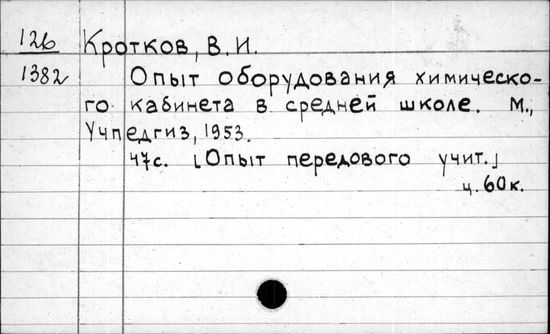 126
1382
Кротков, В. И.
Опыт оборудования химическо-
го кабинета в средней школе. М.,
Учпедгиз, 1953.
47с. [Опыт передового учит.]
ц. 60к.